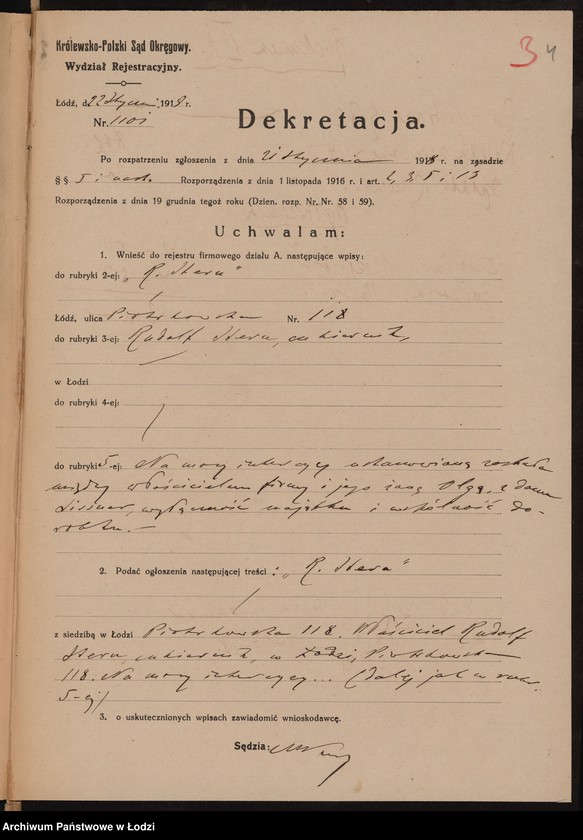 Królewsko-Polski Sąd Okręgowy.
Wydział Rejestracyjny.
3 4
Łódź, d. 22 Stycznia 1918 r.
Nr. 1101
Dekretacja.
Po rozpatrzeniu zgłoszenia z dnia 21 Stycznia 1918 r. na zasadzie
§ § 5 i nast. Rozporządzenia z dnia 1 listopada 1916 r. i art. 2, 3, 5 i 13
Rozporządzenia z dnia 19 grudnia tegoż roku (Dzien. rozp. Nr. Nr. 58 i 59).
Uchwalam:
1. Wnieść do rejestru firmowego działu A. następujące wpisy:
do rubryki 2-ej: „R. Stern"
Łódź, ulica Piotrkowska Nr. 118
do rubryki 3-ej: Rudolf Stern, cukiernik,
w Łodzi
do rubryki 4-ej:
do rubryki 5-ej: Na mocy intercyzy ustanowioną została
między właścicielem firmy i jego żoną Olgą, z domu
wyłączność majątku i wspólność do-
robku. —
2. Podać ogłoszenia następującej treści: „R. Stern"
z siedzibą w Łodzi Piotrkowska 118. Właściciel Rudolf
Stern, cukiernik, w Łodzi, Piotrkowska
118. Na mocy intercyzy... (dalej jak w rubr.
5-ej)
3. o uskutecznionych wpisach zawiadomić wnioskodawcę.
Sędzia:
Archiwum Państwowe w Łodzi